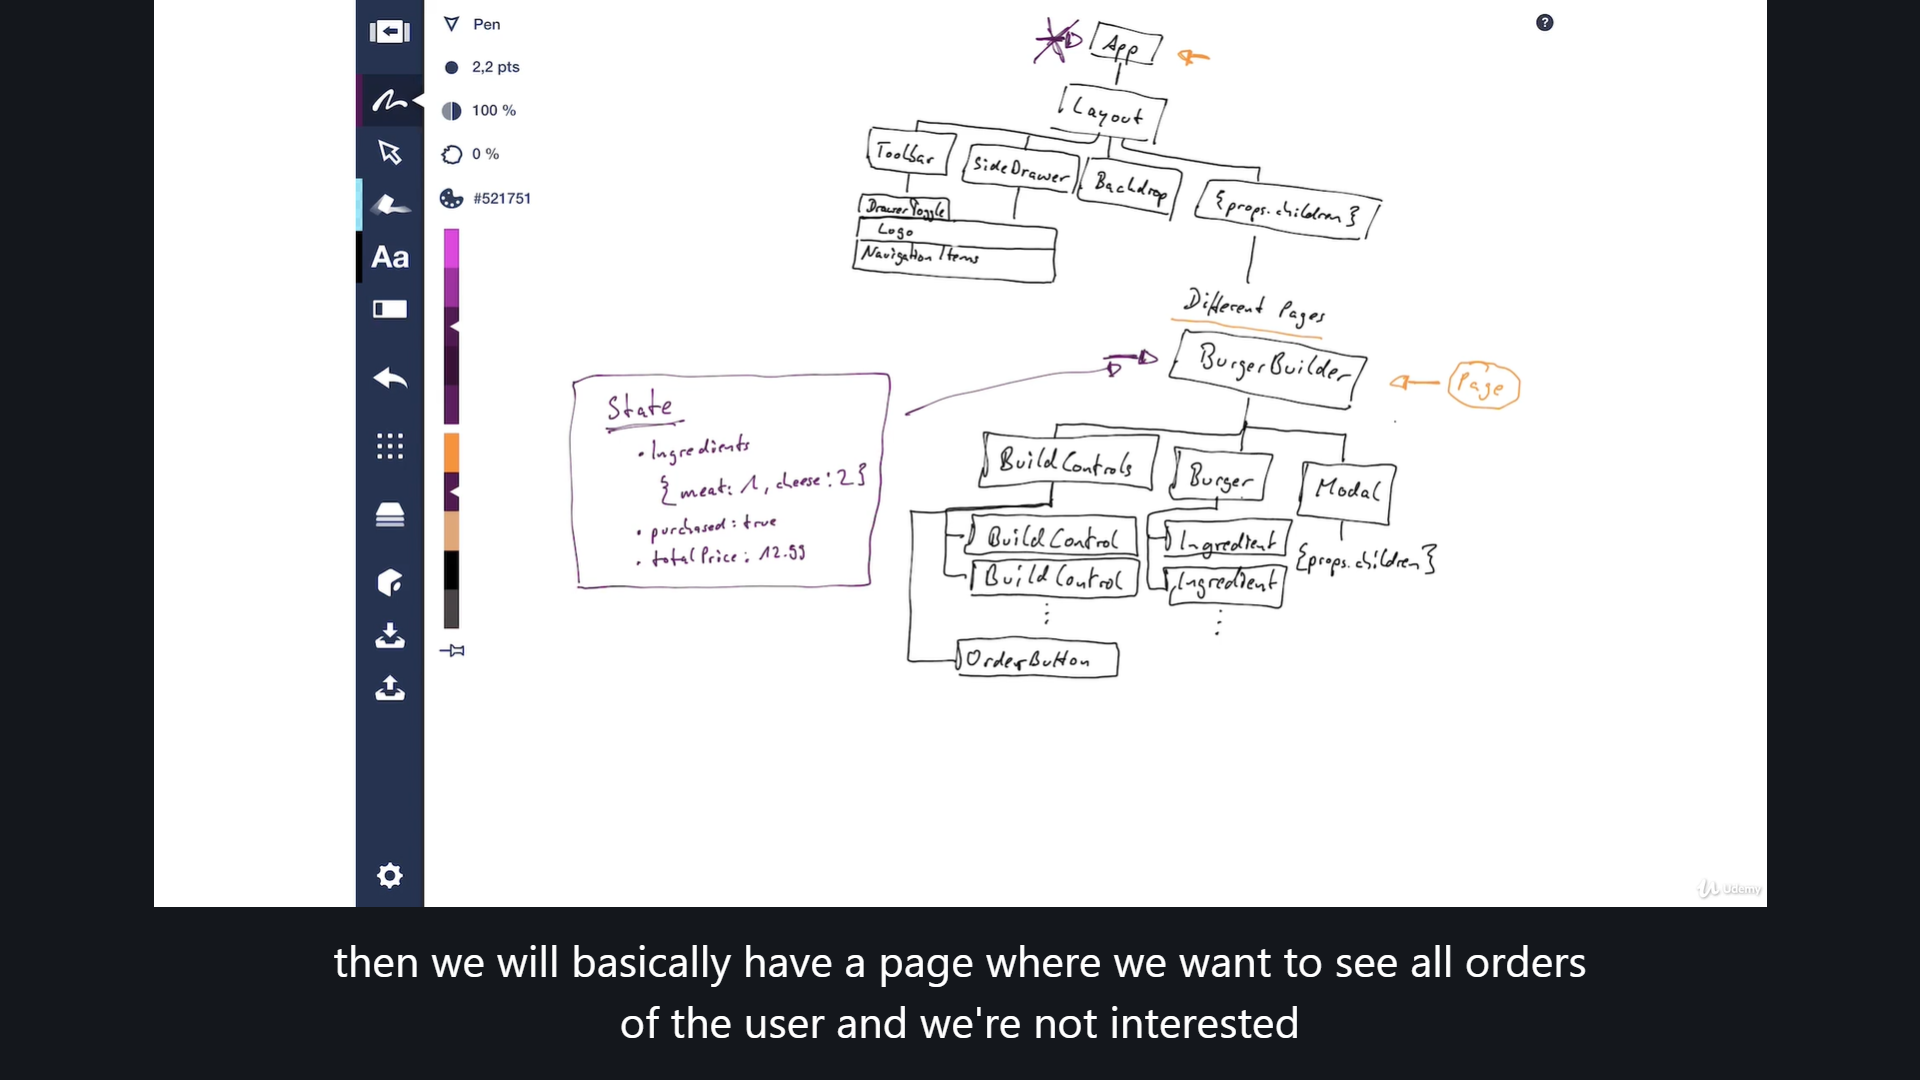 Pen
2,2 pts
100 %
0 %
#521751
Aa
?
App
Layout
Toolbar
SideDrawer
Backdrop
{props.children}
DrawerToggle
Logo
Navigation Items
Different Pages
BurgerBuilder
Page
State
• Ingredients
{meat: 1, cheese: 2}
• purchased: true
• totalPrice: 12.99
BuildControls
Burger
Modal
BuildControl
Ingredient
{props.children}
BuildControl
Ingredient
OrderButton
Udemy
then we will basically have a page where we want to see all orders
of the user and we're not interested